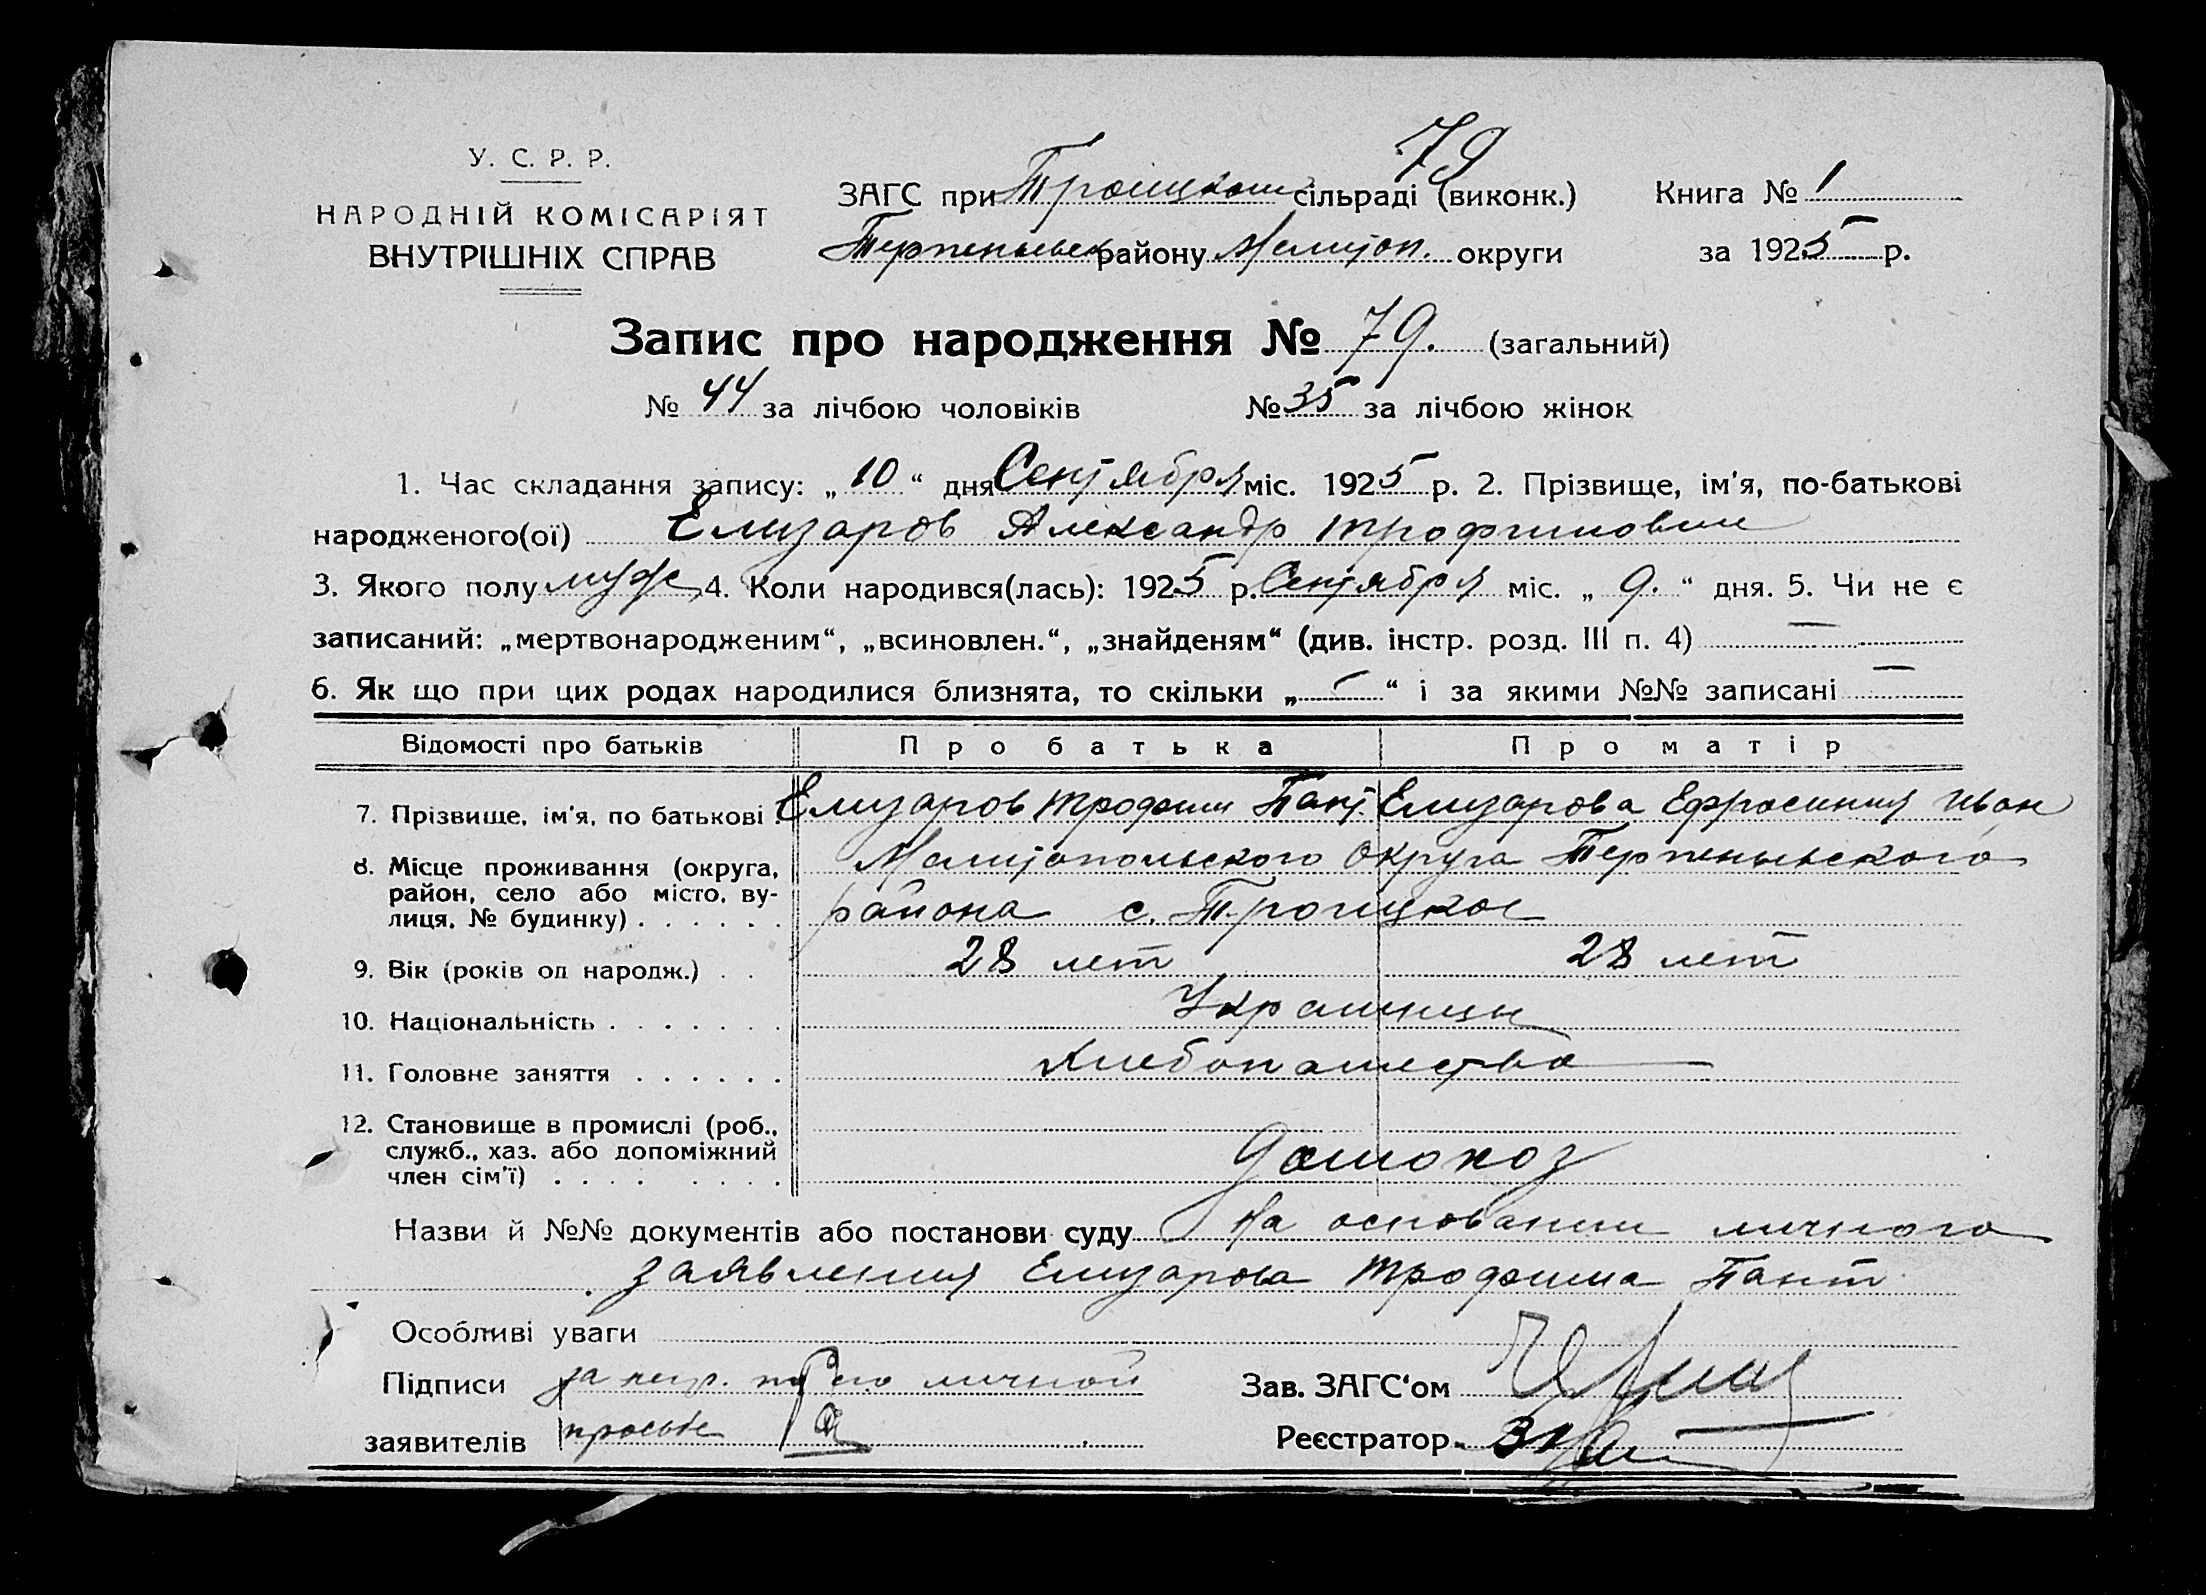 79
У. С. Р. Р.
НАРОДНІЙ КОМІСАРІЯТ
ВНУТРІШНІХ СПРАВ
ЗАГС при Троицком сільраді (виконк.) Книга № 1
Терпеньевск району Мелитоп. округи за 1925 р.
Запис про народження № 79. (загальний)
№ 44 за лічбою чоловіків № 35 за лічбою жінок
1. Час складання запису: „10“ дня Сентября міс. 1925 р. 2. Прізвище, ім'я, по-батькові
народженого(ої) Елизаров Александр Трофимович
3. Якого полу муж 4. Коли народився(лась): 1925 р. Сентября міс. „9.“ дня. 5. Чи не є
записаний: „мертвонародженим“, „всиновлен.“, „знайденям“ (див. інстр. розд. III п. 4) —
6. Як що при цих родах народилися близнята, то скільки „—“ і за якими №№ записані —
Відомості про батьків Про батька Про матір
7. Прізвище, ім'я, по батькові . Елизаров Трофим Пант. Елизарова Ефросиния Иван
8. Місце проживання (округа, Мелитопольского Округа Терпеньевского
район, село або місто, ву-
лиця, № будинку) . . . . . . района с. Троицкое
9. Вік (років од народж.) . . 28 лет 28 лет
10. Національність . . . . . . . Украинцы
11. Головне заняття . . . . . . Хлебопашество
12. Становище в промислі (роб.,
служб., хаз. або допоміжний
член сім'ї) . . . . . . . . Домохоз
Назви й №№ документів або постанови суду На основании личного
заявления Елизарова Трофима Пант
Особливі уваги
Підписи за негр. по его личной Зав. ЗАГС'ом
заявителів просьбе Реєстратор